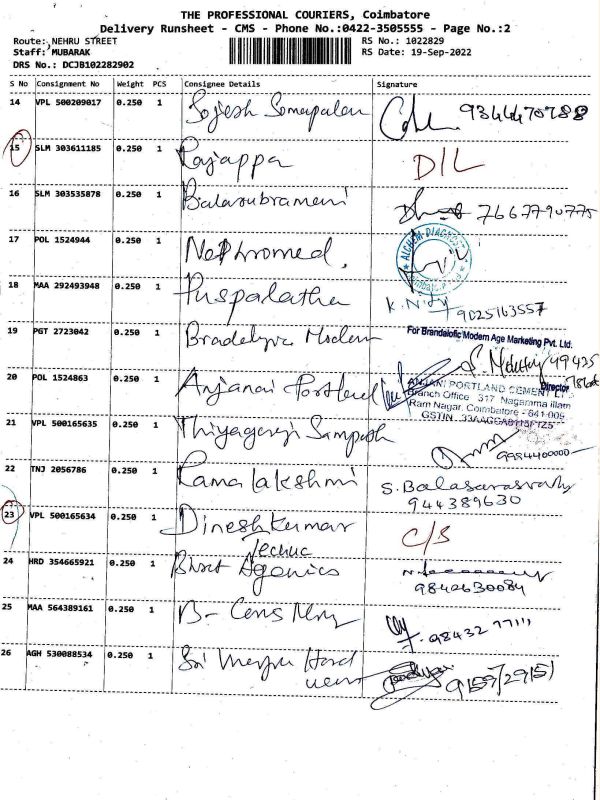 THE PROFESSIONAL COURIERS, Coimbatore
Delivery Runsheet - CMS - Phone No.:0422-3505555 - Page No.:2
Route: NEHRU STREET RS No.: 1022829
Staff: MUBARAK RS Date: 19-Sep-2022
DRS No.: DCJB102282902
S No Consignment No Weight PCS Consignee Details Signature
14 VPL 500209017 0.250 1 Sojesh Somapalan 9344470788
15 SLM 303611185 0.250 1 Rajappa D/L
16 SLM 303535878 0.250 1 Balasubramani 7667790775
17 POL 1524944 0.250 1 Nephromed.
18 MAA 292493948 0.250 1 Puspalatha K. Nity 9025163557
19 PGT 2723042 0.250 1 For Brandalofic Modern Age Marketing Pvt. Ltd.
Director
20 POL 1524863 0.250 1 Anjanai Portland ANJANI PORTLAND CEMENT LTD
Branch Office 317 Nagamma illam
Ram Nagar, Coimbatore - 641-009
21 VPL 500165635 0.250 1 Thiyagaraji Sampath 9984400000
22 TNJ 2056786 0.250 1 Ramalakshmi S. Balasaraswathy
944389630
23 VPL 500165634 0.250 1 Dineshkumar C/S
24 HRD 354665921 0.250 1 9842630084
25 MAA 564389161 0.250 1 98432 77111
26 AGH 530088534 0.250 1 Sri